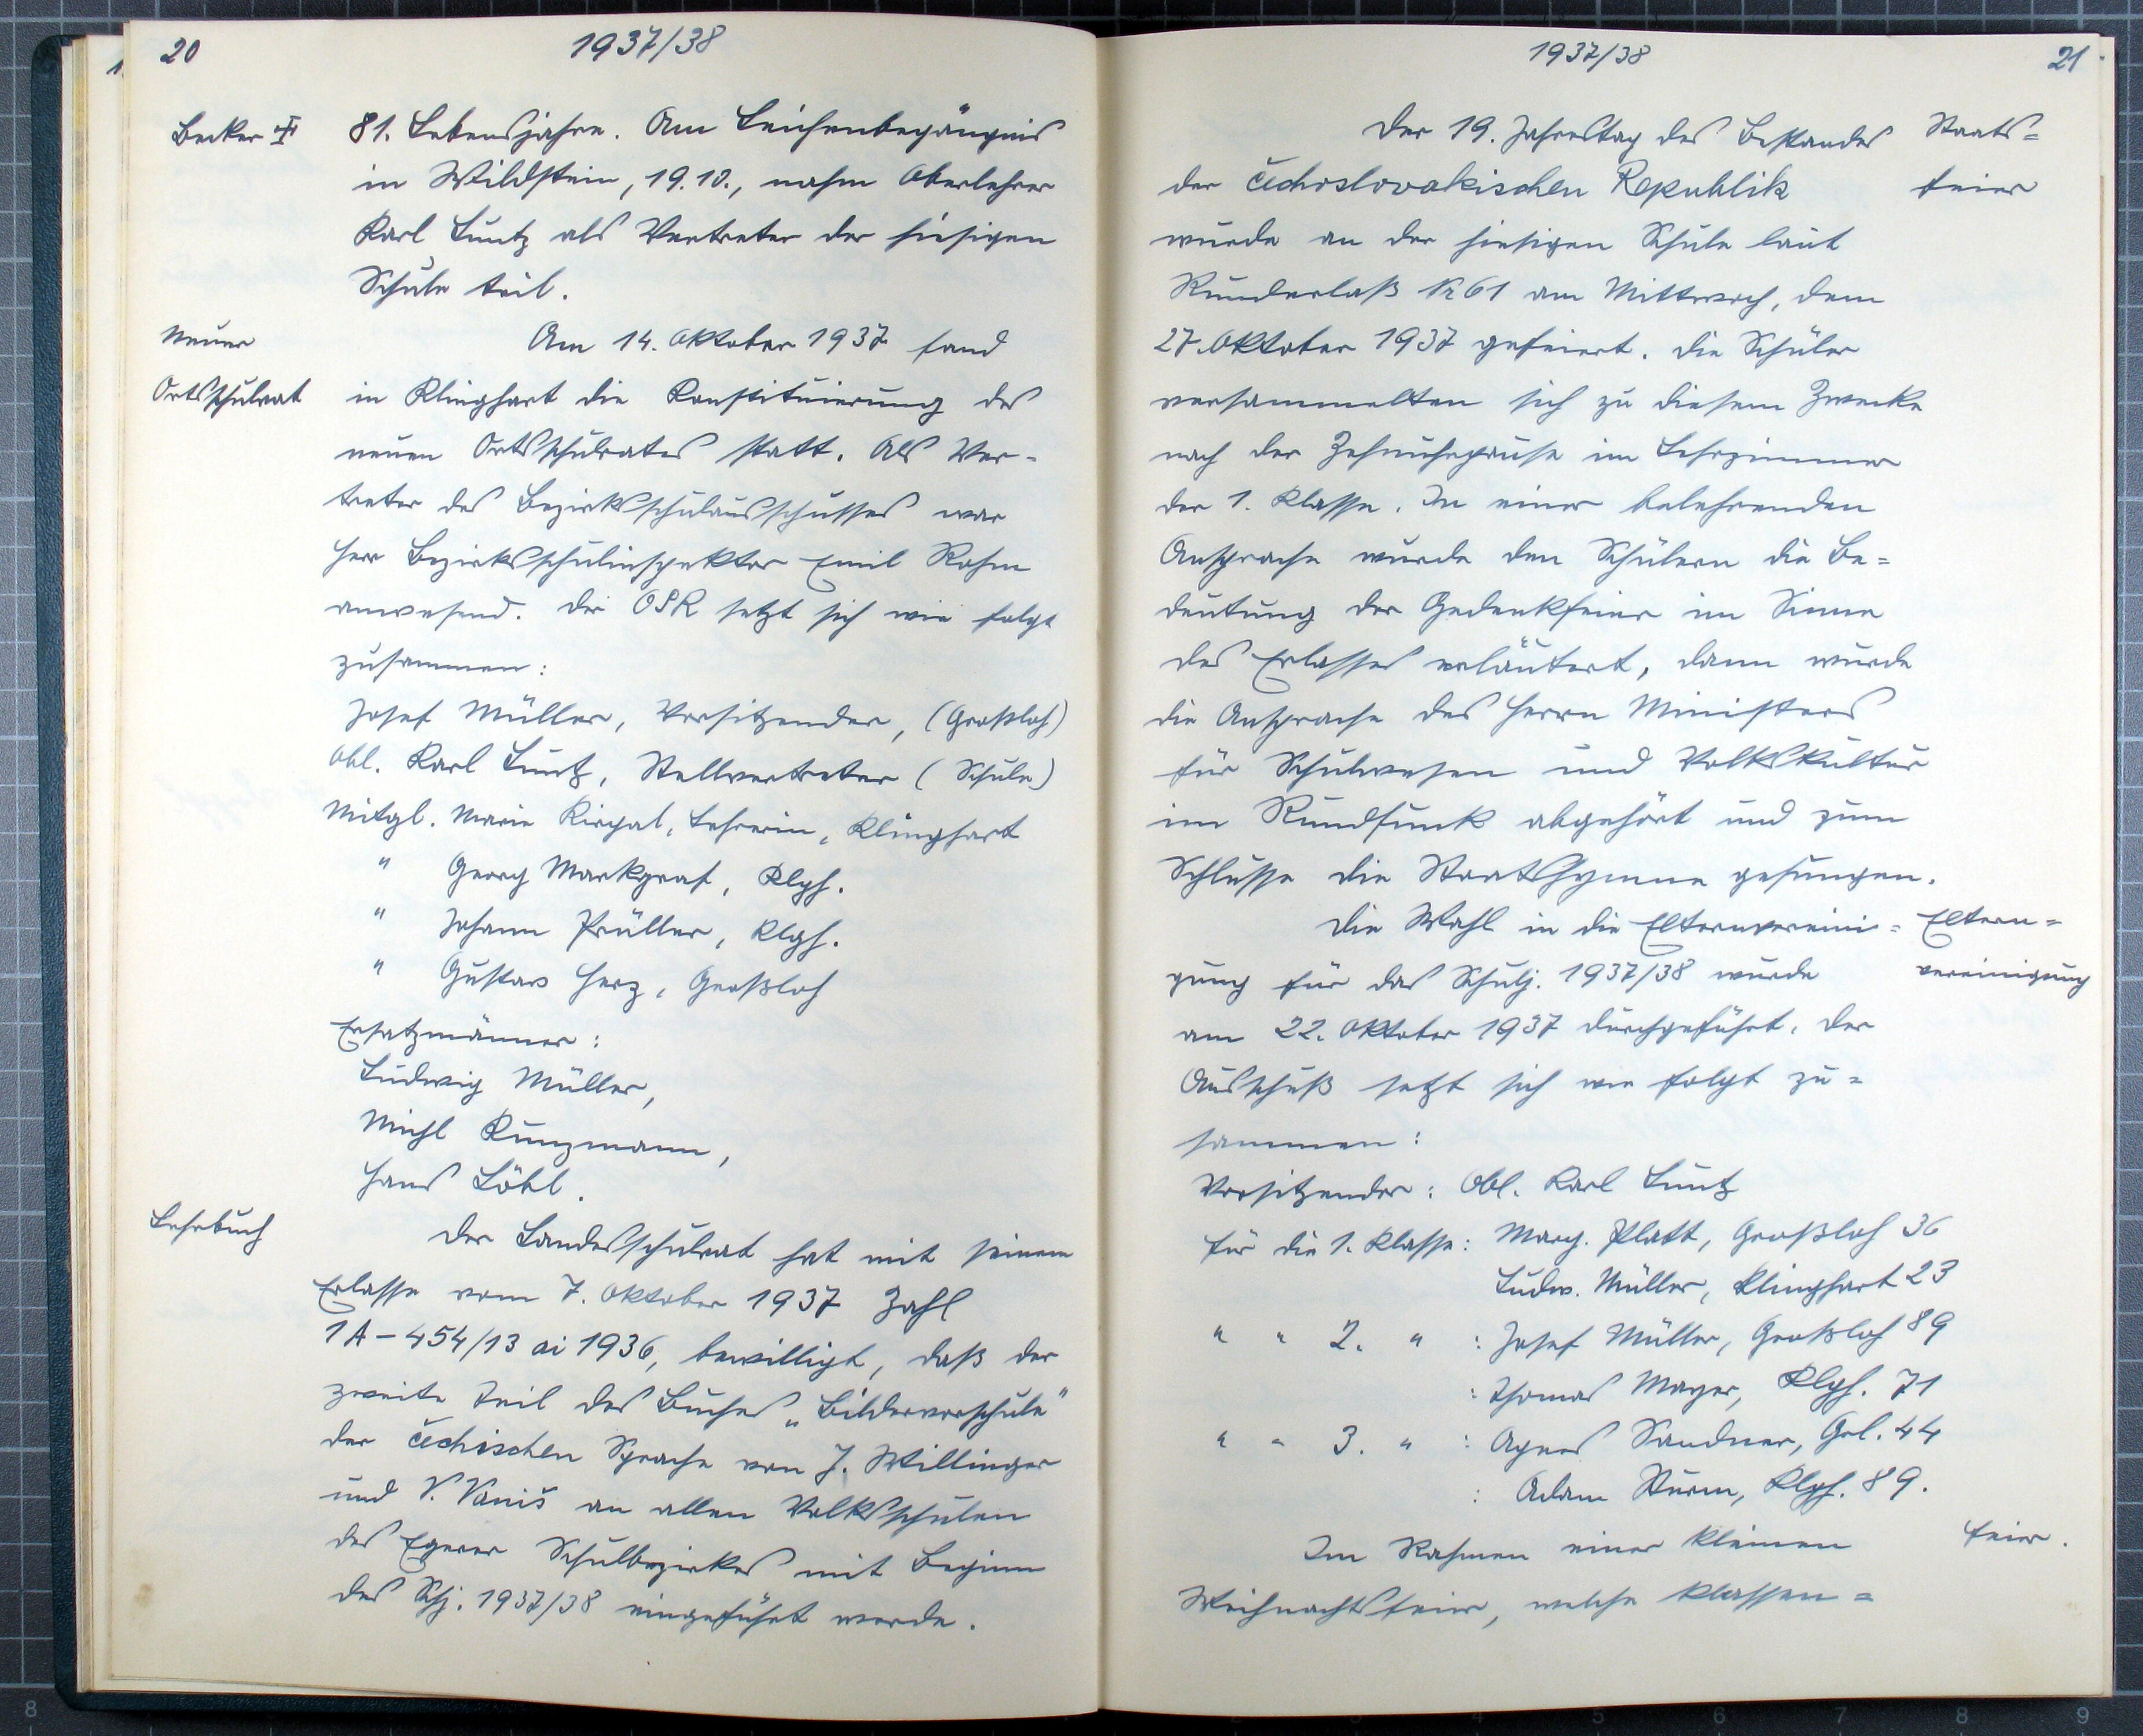 20
1937/38
Becker ‡
81. Lebensjahre. Am Leichenbegängnis
in Wildstein, 19.10., nahm Oberlehrer
Karl Luntz als Vertreter der hiesigen
Schule teil.
Neuer
Ortsschulrat
Am 14. Oktober 1937 fand
in Klinghart die Konstituierung des
neuen Ortsschulrates statt. Als Ver-
treter des Bezirksschulausschusses war
Herr Bezirksschulinspektor Emil Rohm
anwesend. Der OSR setzt sich wie folgt
zusammen:
Josef Müller, Vorsitzender, (Großloh)
Obl. Karl Luntz, Stellvertreter (Schule)
Mitgl. Marie Kirpal, Lehrerin, Klinghart
" Georg Markgraf, Klgh.
" Johann Prüller, Klgh.
" Gustav Herz, Großloh
Ersatzmänner:
Ludwig Müller,
Michl Kunzmann,
Hans Löbl.
Lehrbuch
Der Landesschulrat hat mit seinem
Erlasse vom 7. Oktober 1937 Zahl
1A-454/13 ai 1936, bewilligt, daß der
zweite Teil des Buches „Bildervorschule"
der čechischen Sprache von J. Willinger
und V. Vaniš an allen Volksschulen
des Egerer Schulbezirkes mit Beginn
des Schj. 1937/38 eingeführt werde.
1937/38
21
Der 19. Jahrestag des Bestandes
Staats=
der čechoslovakischen Republik
feier
wurde an der hiesigen Schule laut
Runderlaß Nr 61 am Mittwoch, dem
27. Oktober 1937 gefeiert. Die Schüler
versammelten sich zu diesem Zwecke
nach der Zehnuhrpause im Lehrzimmer
der 1. Klasse. In einer belehrenden
Ansprache wurde den Schülern die Be=
deutung der Gedenkfeier im Sinne
des Erlasses erläutert, dann wurde
die Ansprache des Herrn Ministers
für Schulwesen und Volkskultur
im Rundfunk abgehört und zum
Schlusse die Staatshymne gesungen.
Die Wahl in die Elternvereini=
Eltern=
gung für das Schulj. 1937/38 wurde
vereinigung
am 22. Oktober 1937 durchgeführt. Der
Ausschuß setzt sich wie folgt zu=
sammen:
Vorsitzender: Obl. Karl Luntz
für die 1. Klasse: Marg. Platt, Großloh 36
Ludw. Müller, Klinghart 23
" " 2. " : Josef Müller, Großloh 89
: Thomas Mayer, Klgh. 71
" " 3. " : Agnes Sandner, Grl. 44
: Adam Sturm, Klgh. 89.
Im Rahmen einer kleinen
Feier.
Weihnachtsfeier, welche klassen=